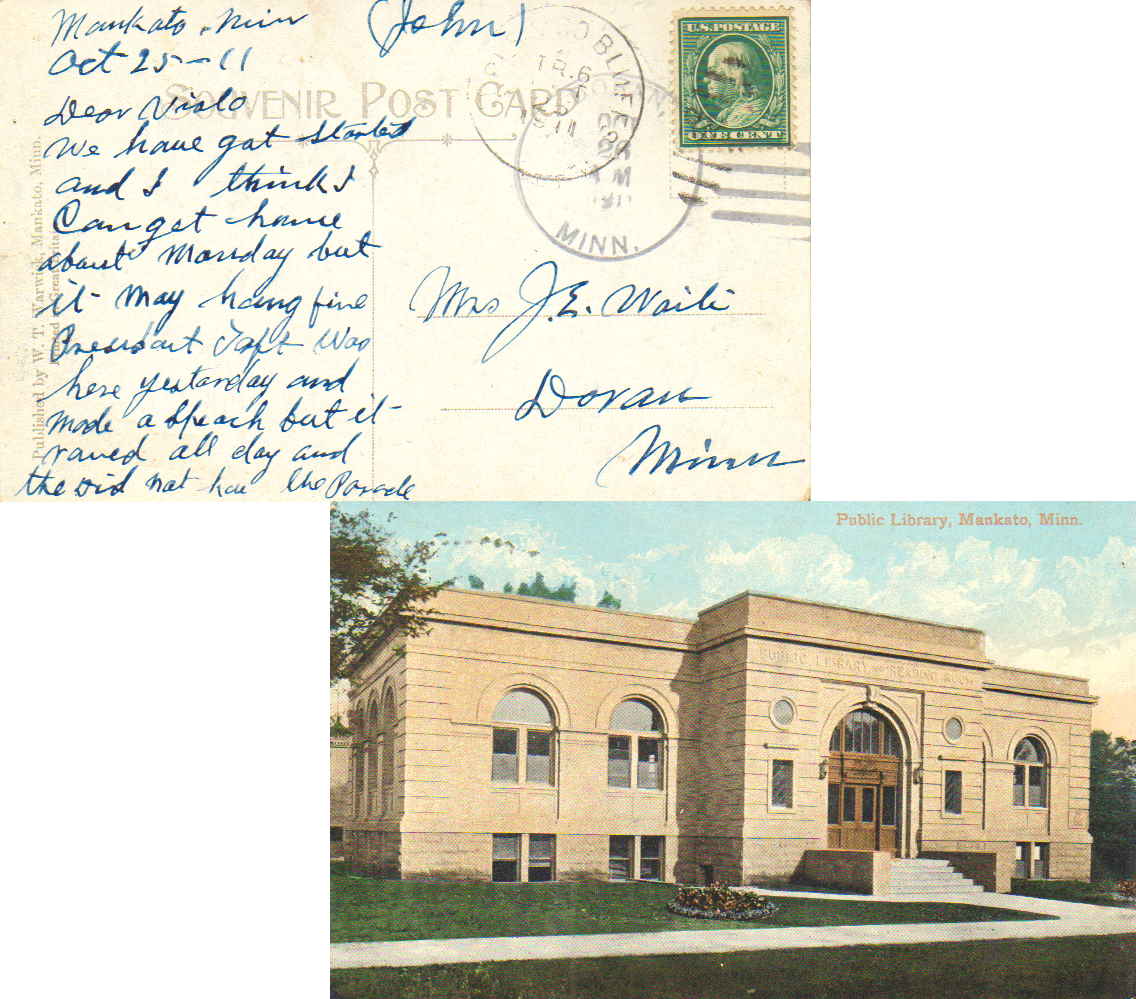 Mankato, Minn
(John)
Oct 25-11
SOUVENIR POST CARD
Dear Viola
We have got started
and I think I
Can get home
about Monday but
it may hang fire
President Taft Was
here yestarday and
made a speach but it
raned all day and
the did not hav the Parade
Published by W. T. Warwick, Mankato, Minn.
U.S. POSTAGE
ONE CENT
TR. 6
1911
DORAN
MINN.
Mrs J. E. Waite
Doran
Minn
Public Library, Mankato, Minn.
PUBLIC LIBRARY AND READING ROOM